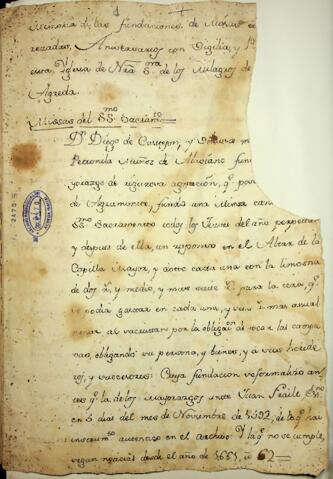 Memoria de las fundaciones de Missas re
zadas, Anniversarios con Vigilia y
esta Yglesia de Nra Sra de los Milagros de
Agreda.
Missas del SSmo Sacramto
Dn Diego de Castejon, y
Petronila Muñoz de fun
yorazgo de rigurosa agnacion, qe
de Agramonte, fundó una Missa can
SSmo Sacramento todos los Jueves del año perpetua
y despues de ella, un responso en el Altar de la
Capilla Mayor, y dotó cada una con la limosna
de dos Rs y medio, y mas para la cera, qe
se podia gastar en cada una, y mas anual
al sacristan por la obligon de tocar las campa
nas, obligando su persona, y bienes, y a sus herede
ros, y successores: Cuya fundacion se formalizó an
tes qe la de los Mayorazgos ante Juan
en 6 dias del mes de Noviembre de 1692, de la qe hai
instrumto autentico en el archivo: Y la qe no se cumple,
segun desde el año de 1661, ú 62